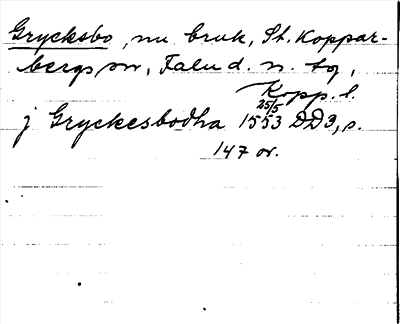 Grycksbo, nu bruk, St. Koppar-
bergs sn, Falu d. n. tg,
Kopp. l.
25/5
j Gryckesbodha 1553 DD3, s.
147 or.